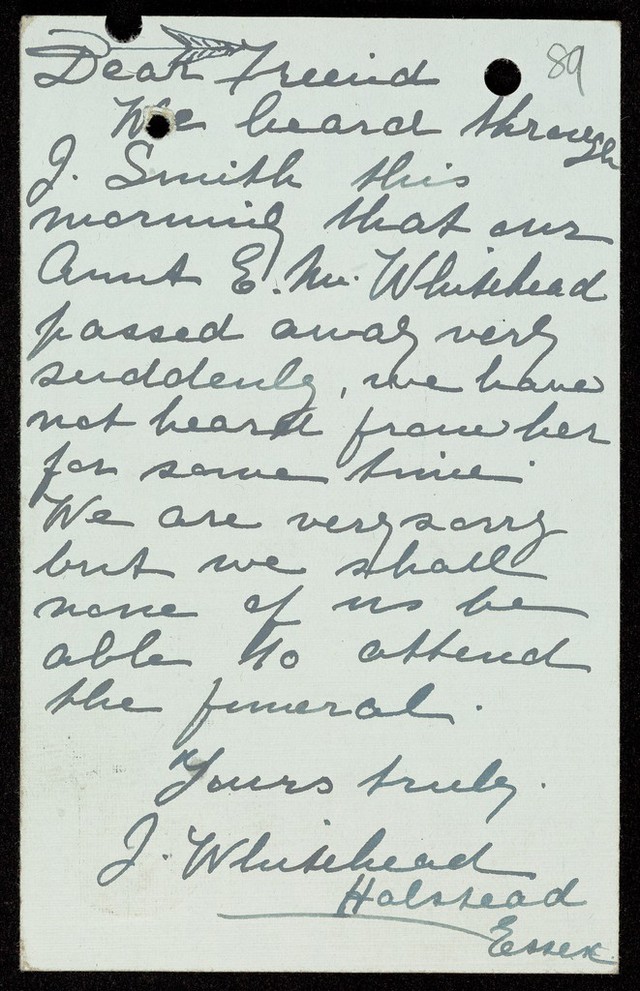 Dear Friend
89
We heard through
J. Smith this
morning that our
Aunt E. M. Whitehead
passed away very
suddenly, we have
not heard from her
for some time.
We are very sorry
but we shall
none of us be
able to attend
the funeral.
Yours truly.
J. Whitehead
Halstead
Essex.